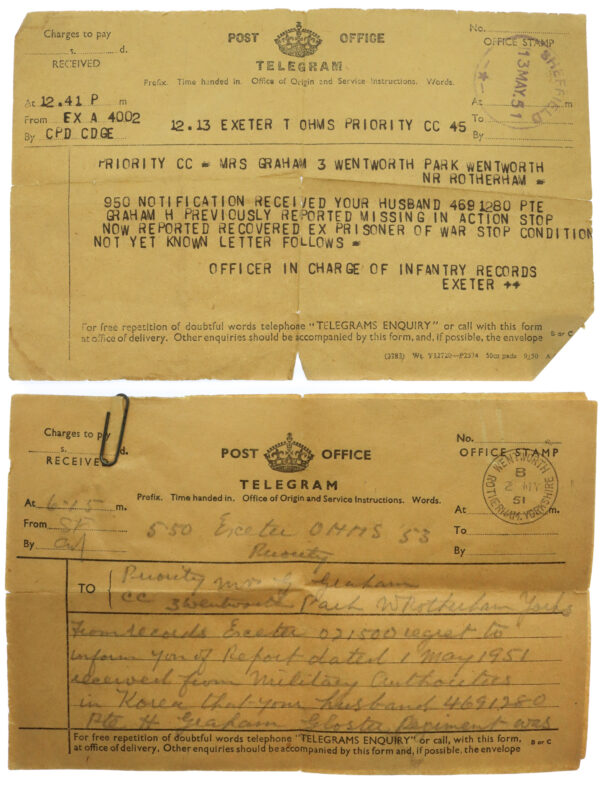 Charges to pay
s. d.
RECEIVED
POST OFFICE
TELEGRAM
Prefix. Time handed in. Office of Origin and Service Instructions. Words.
No.
OFFICE STAMP
SHEFFIELD
13 MAY. 51
At 12.41 P m
From EX A 4002
By CPD CDGE
12.13 EXETER T OHMS PRIORITY CC 45
At m
To
By
PRIORITY CC = MRS GRAHAM 3 WENTWORTH PARK WENTWORTH
NR ROTHERHAM =
950 NOTIFICATION RECEIVED YOUR HUSBAND 4691280 PTE
GRAHAM H PREVIOUSLY REPORTED MISSING IN ACTION STOP
NOW REPORTED RECOVERED EX PRISONER OF WAR STOP CONDITION
NOT YET KNOWN LETTER FOLLOWS =
OFFICER IN CHARGE OF INFANTRY RECORDS
EXETER ++
For free repetition of doubtful words telephone "TELEGRAMS ENQUIRY" or call with this form
at office of delivery. Other enquiries should be accompanied by this form, and, if possible, the envelope
B or C
Charges to pay
s. d.
RECEIVED
POST OFFICE
TELEGRAM
Prefix. Time handed in. Office of Origin and Service Instructions. Words.
No.
OFFICE STAMP
WENTWORTH
B
2 MY
51
ROTHERHAM. YORKSHIRE
At 6-15 m.
From SF
By
550 Exeter OHMS 53
Priority
At m.
To
By
TO Priority Mrs G Graham
CC 3 Wentworth Park W Rotherham Yorks
From records Exeter 021500 regret to
inform you of Report dated 1 May 1951
received from Military Authorities
in Korea that your husband 4691280
Pte H Graham Gloster Regiment was
For free repetition of doubtful words telephone "TELEGRAMS ENQUIRY" or call, with this form,
at office of delivery. Other enquiries should be accompanied by this form and, if possible, the envelope
B or C